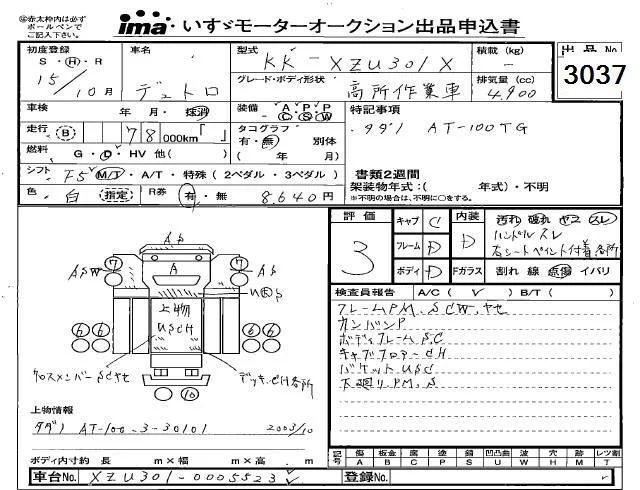 ㊟赤太枠内は必ず
ボールペンで
ご記入下さい。
ima いすゞモーターオークション出品申込書
初度登録 車名 型式 積載 (kg) 出品No
S・H・R
15/10月 デュトロ KK-XZU301X －
グレード・ボディ形状 排気量 (cc) 3037
高所作業車 4,900
車検 年・月・抹消 装備 A P P C S W 特記事項
走行 B 78 000km「 」 タコグラフ タダノ AT-100TG
有・無 別体
燃料 G・D・HV 他( ) ( 年 月) 書類2週間
シフト F5 M/T・A/T・特殊 (2ペダル・3ペダル) 架装物年式:( 年式)・不明
※不明の場合は、不明に○をする。
色 白 指定 R券 有・無 8,640円
評価 キャブ C 内装 汚れ 破れ ヤブ スレ
3 フレーム D D ハンドルスレ
右シートペイント付着各所
ボディ D Fガラス 割れ 線 点傷 イバリ
検査員報告 A/C ( レ ) B/T ( )
フレームPM.SCW.ヤセ
カンバンP
ボディフレームS.C
キャブフロアーCH
バケットUSC
下廻りPM.S
AS
7 ASW A 7 AS
UBS
上物
USCH
6 6 6 6
クロスメンバーSCヤセ デッキCH各所
10
上物情報
タダノ AT-100-3-30101 2003/10
ボディ内寸約 長 m×幅 m×高 m
記号 傷 A 板金 B 腐 C 塗 P 錆 S 凹凸曲 U 波 W 穴 H 跡 M レツ割 T
車台No. XZU301-0005523 登録No.